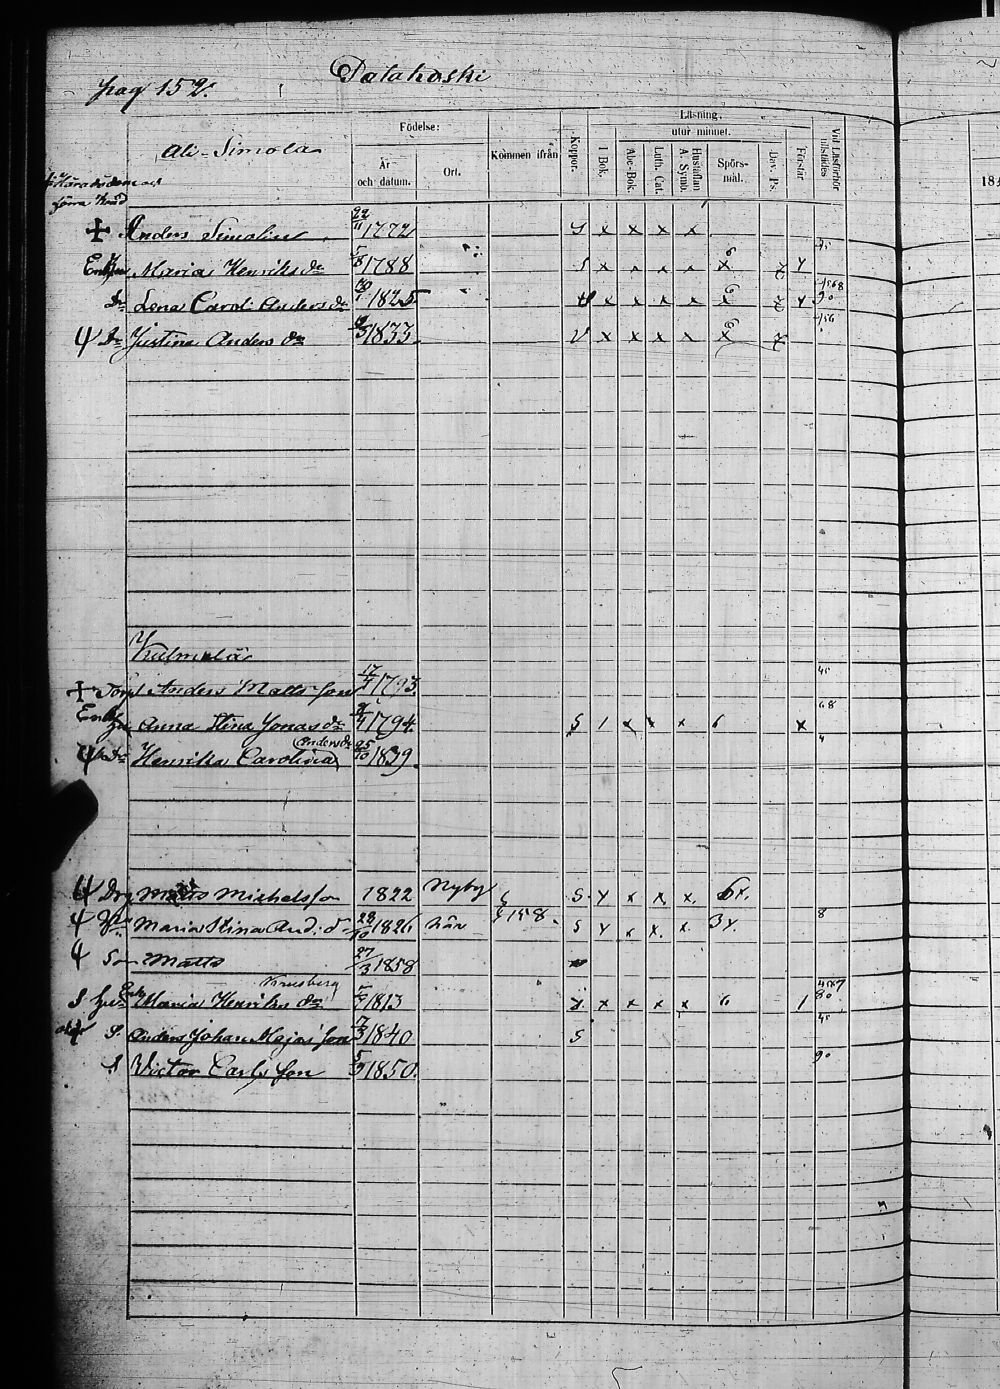 pag 152. Palakoski
Ali-Simola
Födelse:
År och datum.
Ort.
Kommen ifrån
Koppor.
Läsning.
utur minnet.
I Bok.
Abc-Bok.
Luth. Cat.
Hustaflan A. Symb.
Spörsmål.
Dav. Ps.
Förstår.
Vid Läsförhör tillstädes
18
Anders Simolin 22/11 1772 S x x x x
Enk Maria Henriks dr 5/8 1788 S x x x x x 7 y 45
dr Lena Carol. Anders dr 1825 x x x x x 7 y 90
dr Justina Anders dr 1833 V x x x x x 7 156
Kulmala
Torp Anders Matts son 17 1793. 45
Enk Anna Stina Jonas dr 1794. S 1 x x x 6 x 68
Anders dr
dr Henrika Carolina 25/10 1839. 4
Drg Matts Michelsson 1822 Nyby S y x x x. 6 x.
Maria Stina And. d. 28/10 1826 här 158. S y x x. x 3 y. 8
Son Matts 27/3 1858
Enk Maria Henriks dr 1813 x x x x x 6 1
S. Anders Johan Majas son 1840 S 45
S Victor Carls son 1850. 90